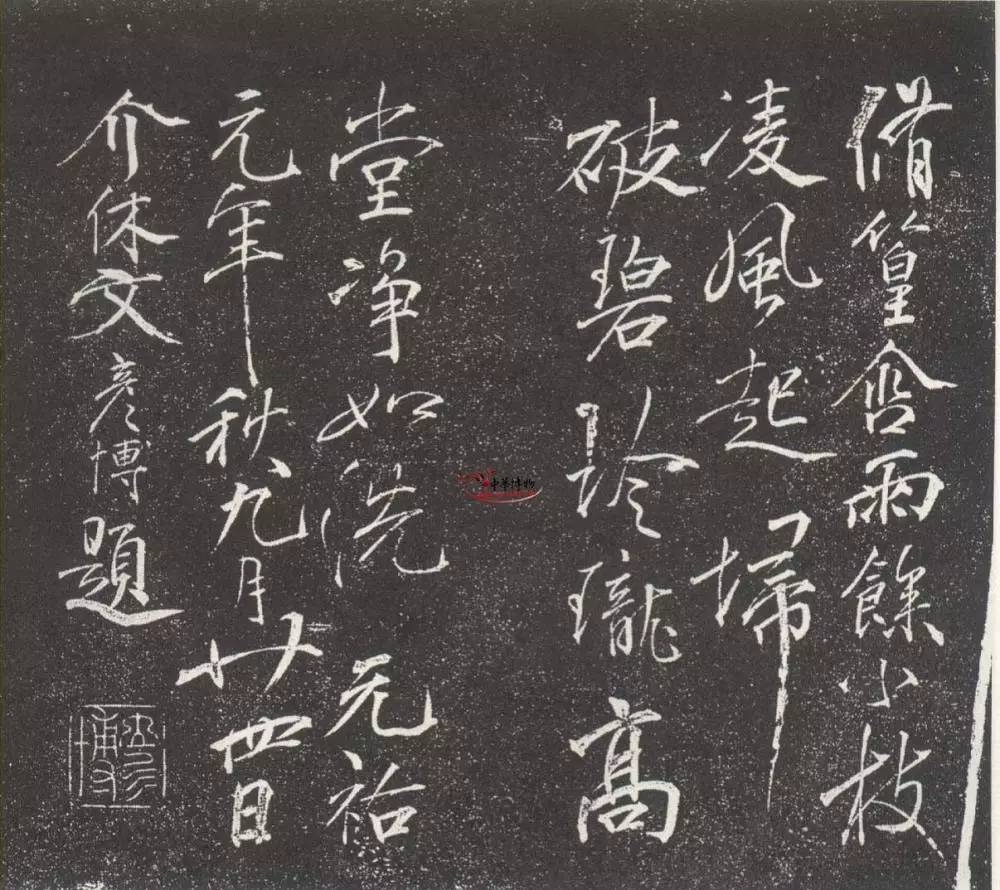 脩篁含雨餘小枝
凌風起掃
破碧玲瓏高
堂浄如洗 元祐
元年秋九月廿四日
介休文彦博題
中華博物